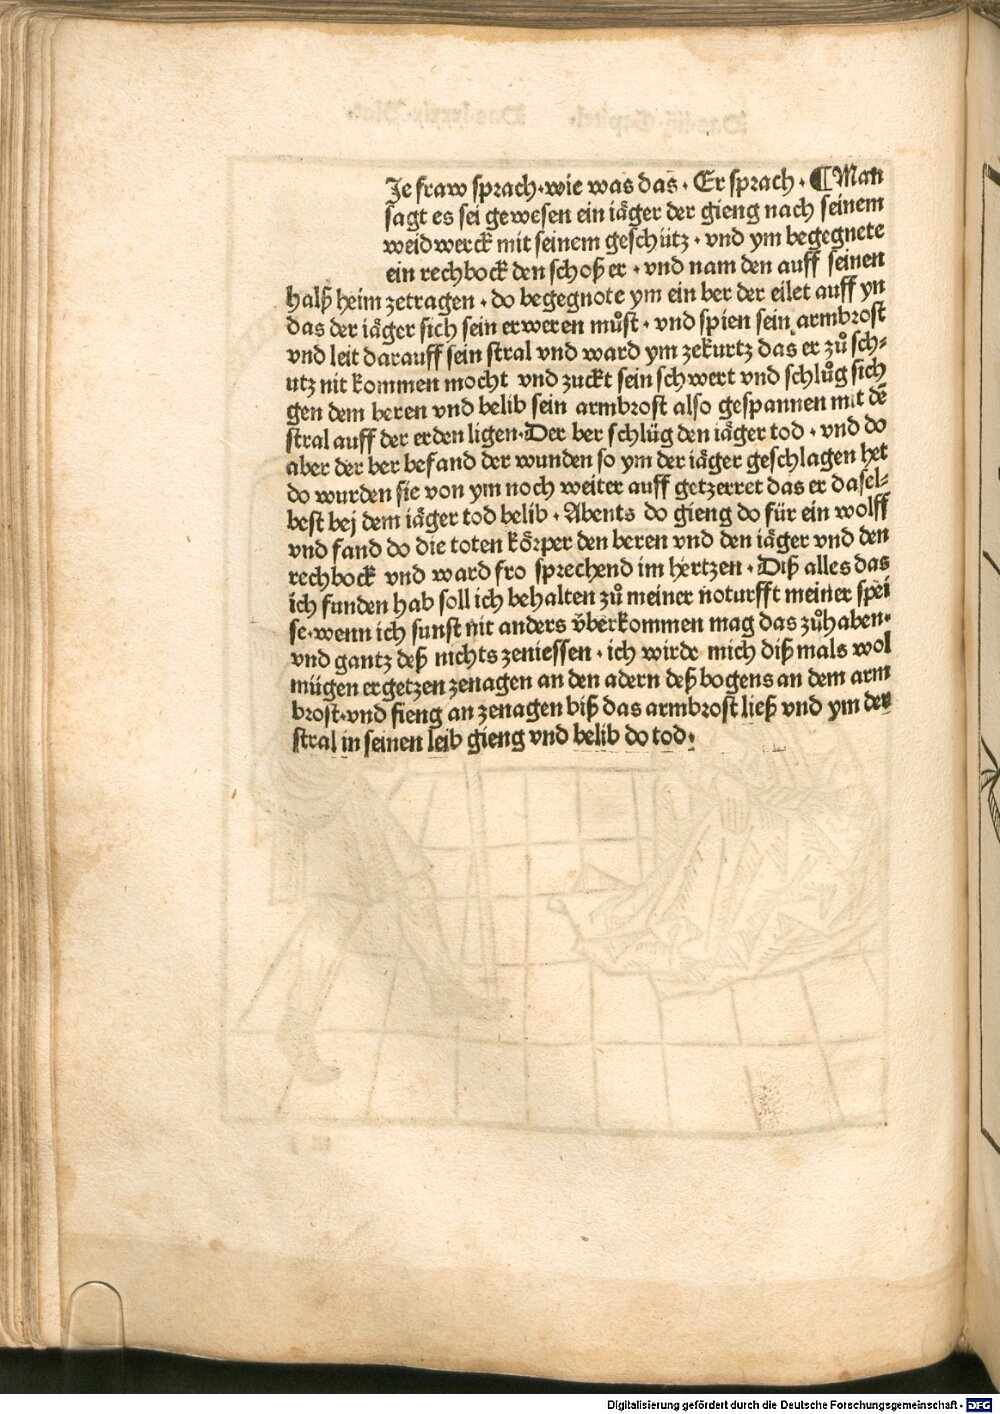 Je fraw sprach·wie was das · Er sprach · ¶ Man
sagt es sei gewesen ein iäger der gieng nach seinem
weidwerck mit seinem geschütz · vnd ym begegnete
ein rechbock den schoß er · vnd nam den auff seinen
halß heim zetragen · do begegnote ym ein ber der eilet auff yn
das der iäger sich sein erweren můst · vnd spien sein armbrost
vnd leit darauff sein stral vnd ward ym zekurtz das er zů sch⸗
utz nit kommen mocht vnd zuckt sein schwert vnd schlůg sich
gen dem beren vnd belib sein armbrost also gespannen mit dē
stral auff der erden ligen·Der ber schlüg den iäger tod · vnd do
aber der ber befand der wunden so ym der iäger geschlagen het
do wurden sie von ym noch weiter auff getzerret das er dasel⸗
best bej dem iäger tod belib · Abents do gieng do für ein wolff
vnd fand do die toten körper den beren vnd den iäger vnd den
rechbock vnd ward fro sprechend im hertzen · Diß alles das
ich funden hab soll ich behalten zů meiner noturfft meiner spei
se·wenn ich sunst nit anders v̈berkommen mag das zůhaben·
vnd gantz deß nichts zeniessen · ich wirde mich diß mals wol
mügen ergetzen zenagen an den adern deß bogens an dem arm
brost·vnd fieng an zenagen biß das armbrost ließ vnd ym der
stral in seinen leib gieng vnd belib do tod·
Digitalisierung gefördert durch die Deutsche Forschungsgemeinschaft - DFG